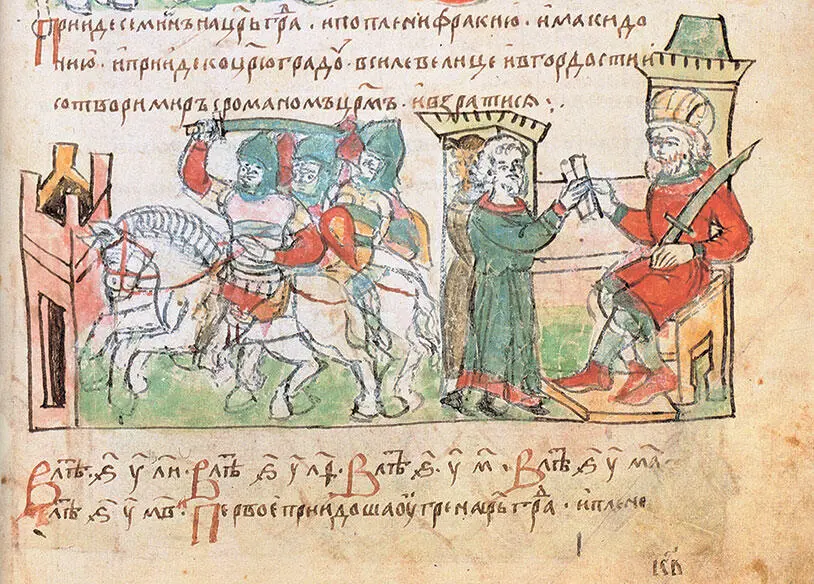 Прииде семионъ на цр҃ьгрⷣа · и поплени фракию · и макидо
нию · и прииде ко цр҃юградоу · в силе велице и в гордости и
сотвори миръ с романомъ цр҃мъ · и взратися :·
В лѣⷮ · ҂ѕ҃ · у҃ л҃и · В лѣⷮ ҂ѕ҃ у҃ л҃ѳ · В лѣⷮ ҂ѕ҃ · у҃ · м҃ · В лѣⷮ ҂ѕ҃ у҃ м҃а ·
В лѣⷮ ҂ѕ҃ у҃ м҃в · Первое приидоша оугре на цр҃ьгрⷣа · и плене